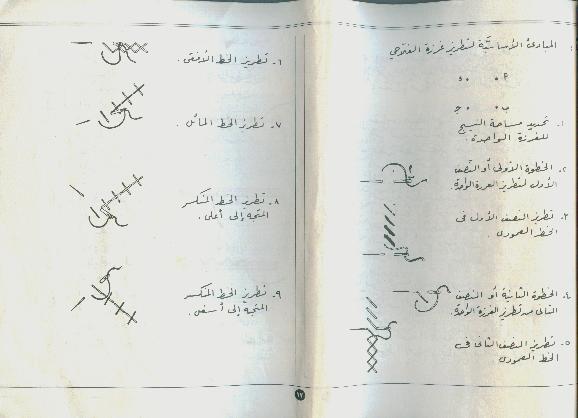 المبادئ الأساسيّة لتطريز غرزة الفلاحي :
أ .    . د
ب .    . ج
١. تحديد مساحة النسيج
للغرزة الواحدة .
٢. الخطوة الأولى أو النصف
الأول لتطريز الغرزة الواحدة.
٣. تطريز النصف الأول في
الخط العمودي .
٤. الخطوة الثانية أو النصف
الثاني من تطريز الغرزة الواحدة.
٥. تطريز النصف الثاني في
الخط العمودي
٦. تطريز الخط الأفقي .
٧. تطريز الخط المائل .
٨. تطريز الخط المنكسر
المتجه إلى أعلى .
٩. تطريز الخط المنكسر
المتجه إلى أسفل .
١٢